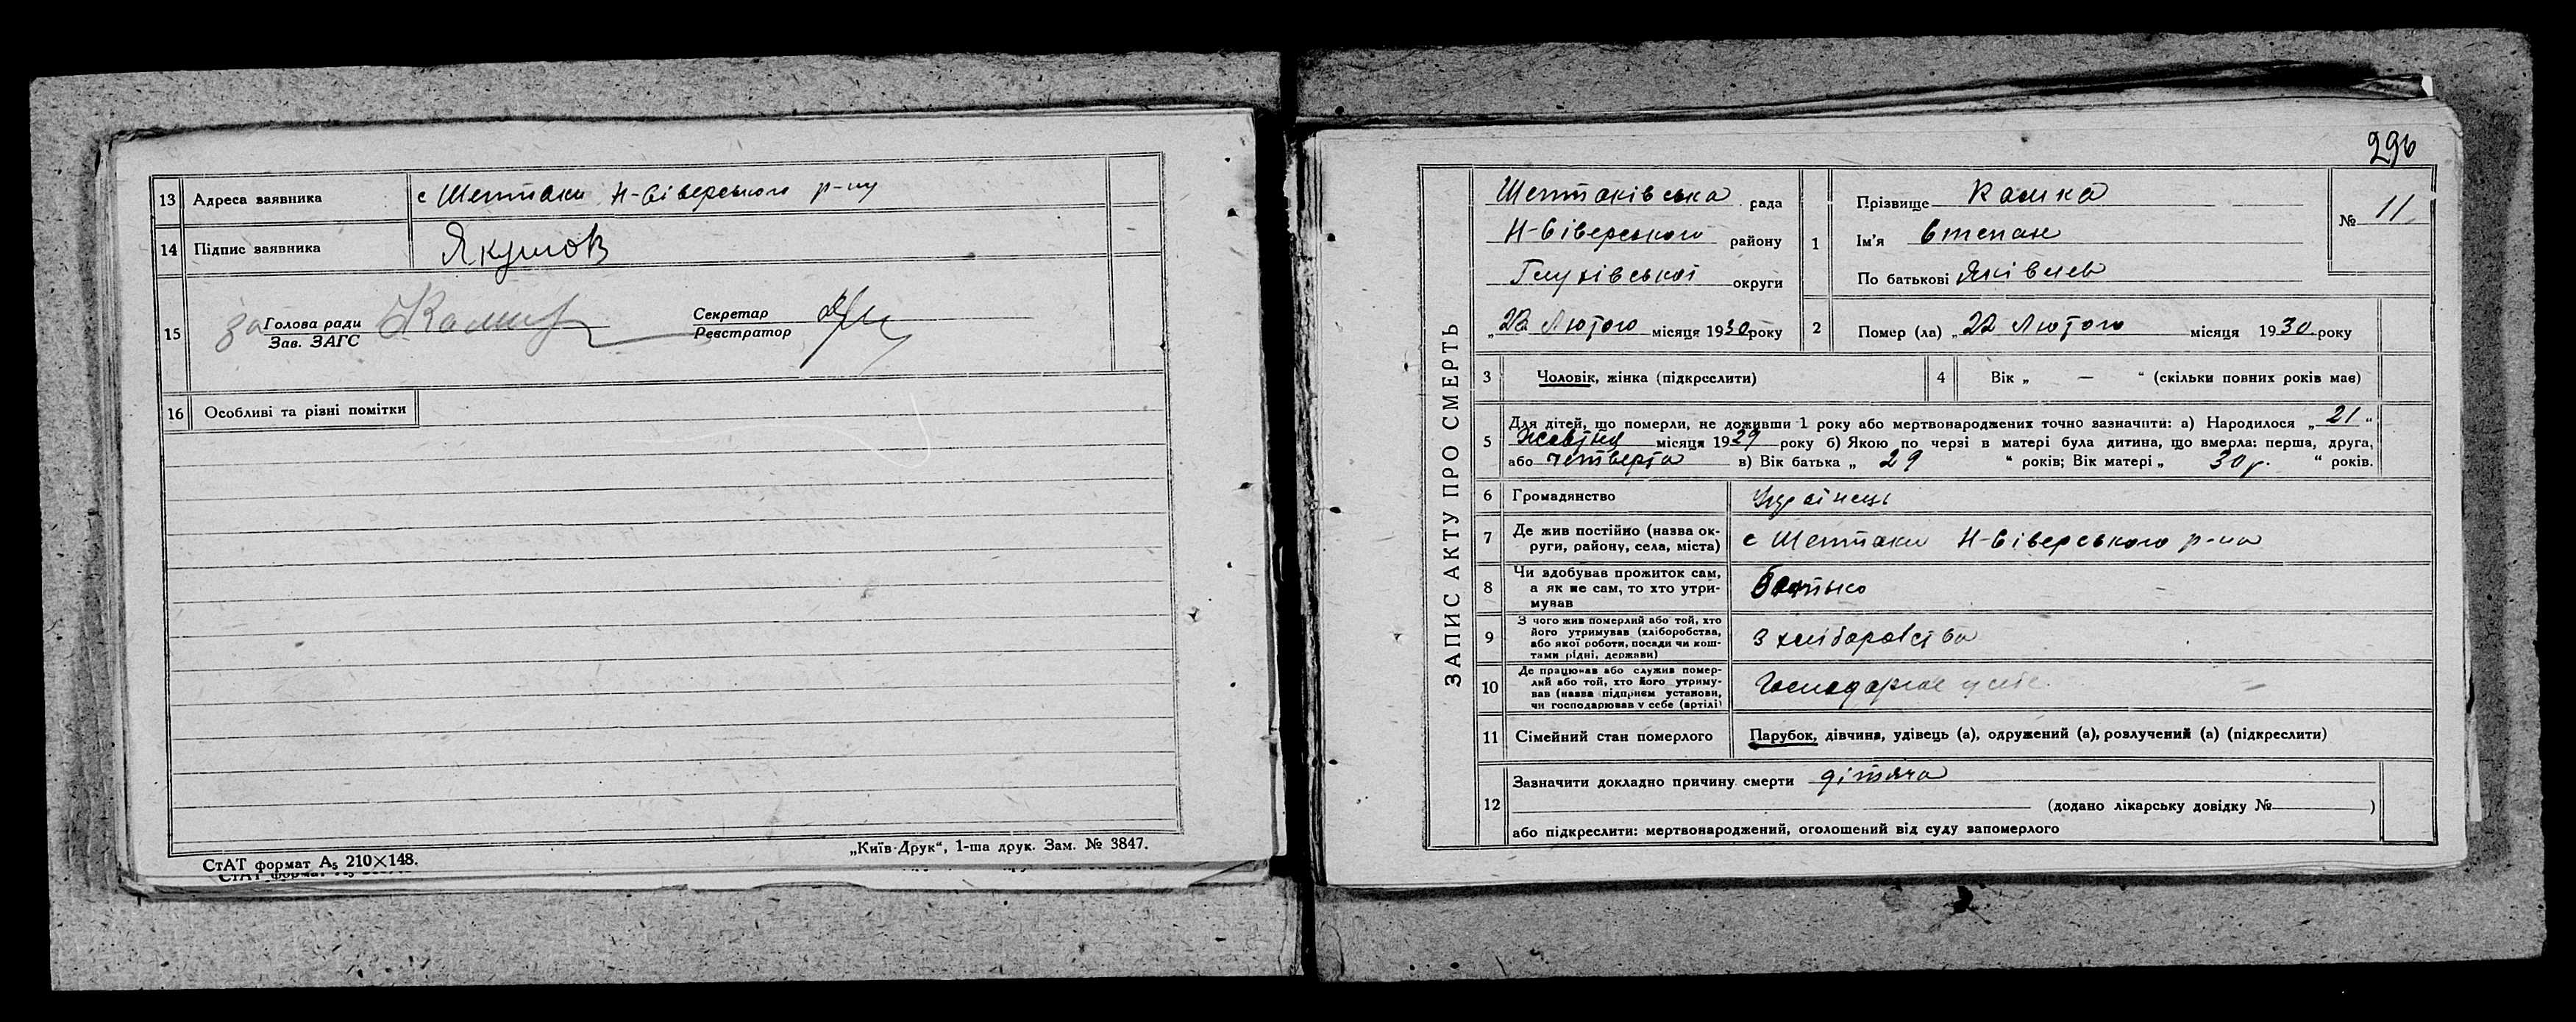 13 Адреса заявника с Шептаки Н-Сіверського р-ну
14 Підпис заявника Якушов
15 за Голова ради
Зав. ЗАГС
Секретар
Реєстратор
16 Особливі та різні помітки
СтАТ формат А₅ 210×148.
„Київ-Друк“, 1-ша друк. Зам. № 3847.
296
ЗАПИС АКТУ ПРО СМЕРТЬ
Шептаківська рада
Н-Сіверського району
Глухівської округи
„22 Лютого місяця 1930 року
1 Прізвище
Ім'я Степан
По батькові Яківлев
№ 11
2 Помер (ла) „22 Лютого місяця 1930 року
3 Чоловік, жінка (підкреслити)
4 Вік „ — “ (скільки повних років має)
5 Для дітей, що померли, не доживши 1 року або мертвонароджених точно зазначити: а) Народилося „21“
Жовтня місяця 1929 року б) Якою по черзі в матері була дитина, що вмерла: перша, друга,
або четверта в) Вік батька „ 29 “ років; Вік матері „ 30 р. “ років.
6 Громадянство Українець
7 Де жив постійно (назва ок-
руги, району, села, міста) с Шептаки Н-Сіверського р-на
8 Чи здобував прожиток сам,
а як не сам, то хто утри-
мував Батько
9 З чого жив померлий або той, хто
його утримував (хліборобства,
або якої роботи, посади чи кош-
тами рідні, держави) З хліборобства
10 Де працював або служив помер-
лий або той, хто його утриму-
вав (назва підприєм установи,
чи господарював у себе (артілі)
11 Сімейний стан померлого Парубок, дівчина, удівець (а), одружений (а), розлучений (а) (підкреслити)
12 Зазначити докладно причину смерти дітяча
(додано лікарську довідку № )
або підкреслити: мертвонароджений, оголошений від суду запомерлого